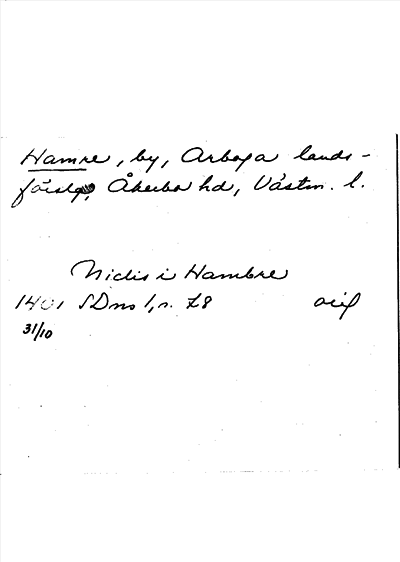 Hamre, by, Arboga lands-
förslg, Åkerbo hd, Västm. l.
Niclis i Hambre
1401 SDns 1, s. 78 orig
31/10